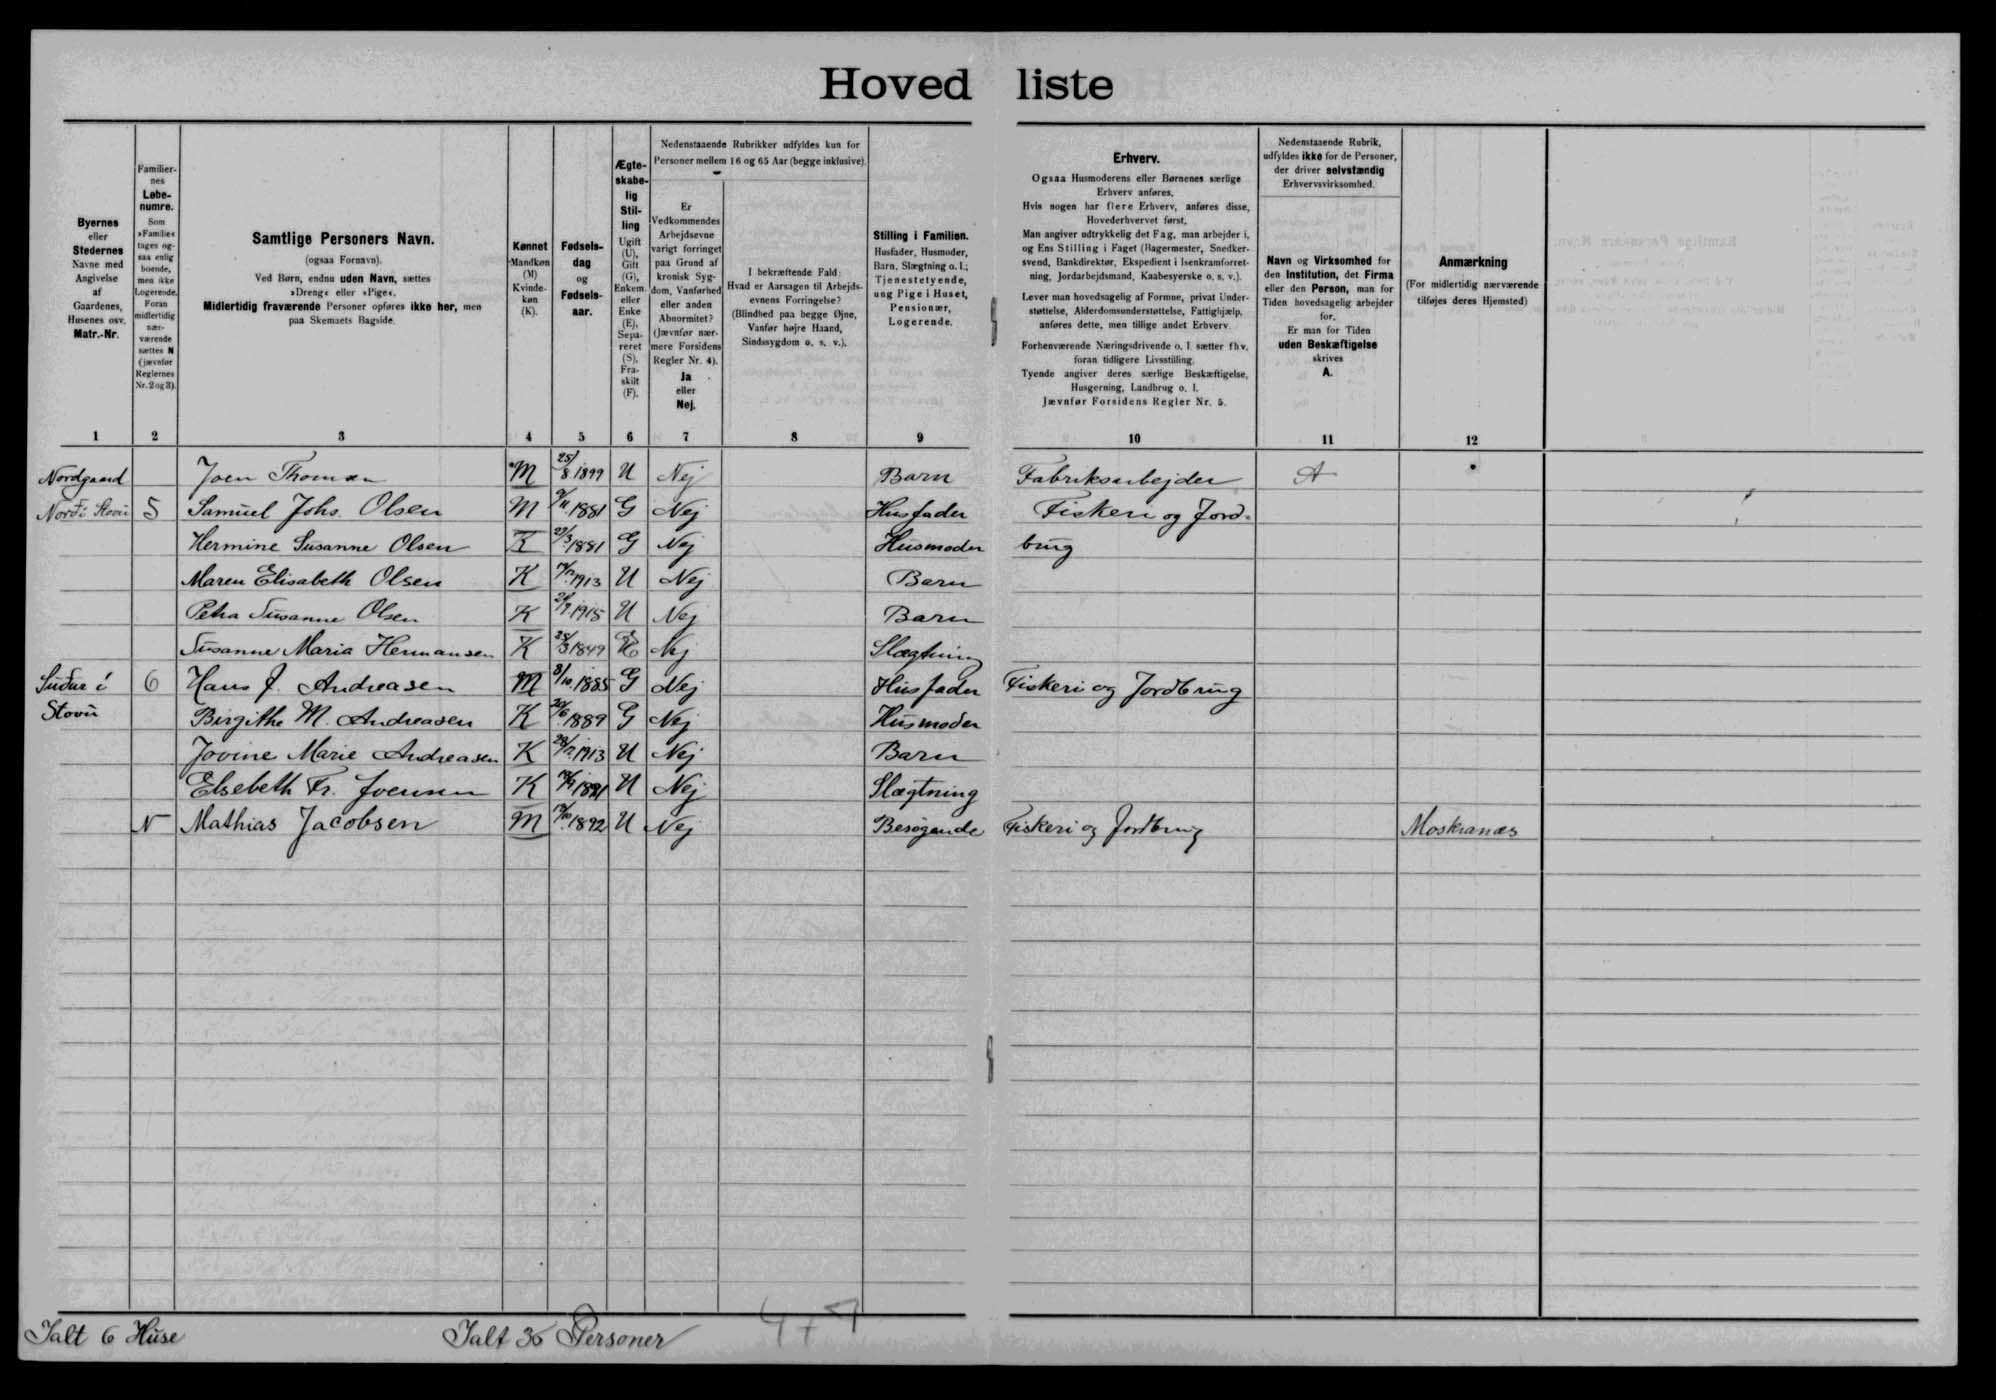 Hovedliste
Byernes
eller
Stedernes
Navne med
Angivelse
af
Gaardenes,
Husenes osv.
Matr.-Nr.
Familier-
nes
Løbe-
numre.
Som
»Familie«
tages og-
saa enlig
boende,
men ikke
Logerende.
Foran
midlertidig
nær-
værende
sættes N
(jævnfør
Reglernes
Nr. 2 og 3).
Samtlige Personers Navn.
(ogsaa Fornavn).
Ved Børn, endnu uden Navn, sættes
»Dreng« eller »Pige«.
Midlertidig fraværende Personer opføres ikke her, men
paa Skemaets Bagside.
Kønnet
Mandkøn
(M)
Kvinde-
køn
(K).
Fødsels-
dag
og
Fødsels-
aar.
Ægte-
skabe-
lig
Stil-
ling
Ugift
(U),
Gift
(G),
Enkem.
eller
Enke
(E),
Sepa-
reret
(S),
Fra-
skilt
(F).
Nedenstaaende Rubrikker udfyldes kun for
Personer mellem 16 og 65 Aar (begge inklusive).
Er
Vedkommendes
Arbejdsevne
varigt forringet
paa Grund af
kronisk Syg-
dom, Vanførhed
eller anden
Abnormitet?
(Jævnfør nær-
mere Forsidens
Regler Nr. 4).
Ja
eller
Nej.
I bekræftende Fald:
Hvad er Aarsagen til Arbejds-
evnens Forringelse?
(Blindhed paa begge Øjne,
Vanfør højre Haand,
Sindssygdom o. s. v.).
Stilling i Familien.
Husfader, Husmoder,
Barn, Slægtning o. l.;
Tjenestetyende,
ung Pige i Huset,
Pensionær,
Logerende.
Erhverv.
Ogsaa Husmoderens eller Børnenes særlige
Erhverv anføres.
Hvis nogen har flere Erhverv, anføres disse,
Hovederhvervet først.
Man angiver udtrykkelig det Fag, man arbejder i,
og Ens Stilling i Faget (Bagermester, Snedker-
svend, Bankdirektør, Ekspedient i Isenkramforret-
ning, Jordarbejdsmand, Kaabesyerske o. s. v.).
Lever man hovedsagelig af Formue, privat Under-
støttelse, Alderdomsunderstøttelse, Fattighjælp,
anføres dette, men tillige andet Erhverv.
Forhenværende Næringsdrivende o. l. sætter fhv.
foran tidligere Livsstilling.
Tyende angiver deres særlige Beskæftigelse,
Husgerning, Landbrug o. l.
Jævnfør Forsidens Regler Nr. 5.
Nedenstaaende Rubrik,
udfyldes ikke for de Personer,
der driver selvstændig
Erhvervsvirksomhed.
Navn og Virksomhed for
den Institution, det Firma
eller den Person, man for
Tiden hovedsagelig arbejder
for.
Er man for Tiden
uden Beskæftigelse
skrives
A.
Anmærkning
(For midlertidig nærværende
tilføjes deres Hjemsted)
1 2 3 4 5 6 7 8 9 10 11 12
Nordgaard Joen Thomsen M 25/8 1899 U Nej Barn Fabriksarbejder A
Nord i Stovu 5 Samuel Johs. Olsen M 1881 G Nej Husfader Fiskeri og Jord-
Hermine Susanne Olsen K 27/3 1881 G Nej Husmoder brug
Maren Elisabeth Olsen K 1913 U Nej Barn
Petra Susanne Olsen K 1915 U Nej Barn
Susanne Maria Hermansen K 25/3 1849 E Nej Slægtning
Sudur i 6 Hans J. Andreasen M 8/10 1885 G Nej Husfader Fiskeri og Jordbrug
Stovu Birgithe M. Andreasen K 1889 G Nej Husmoder
Jovine Marie Andreasen K 1913 U Nej Barn
Elsebeth Fr. Joensen K U Nej Slægtning
N Mathias Jacobsen M 1892 U Nej Besøgende Fiskeri og Jordbrug Moskranæs
Ialt 6 Huse Ialt 36 Personer